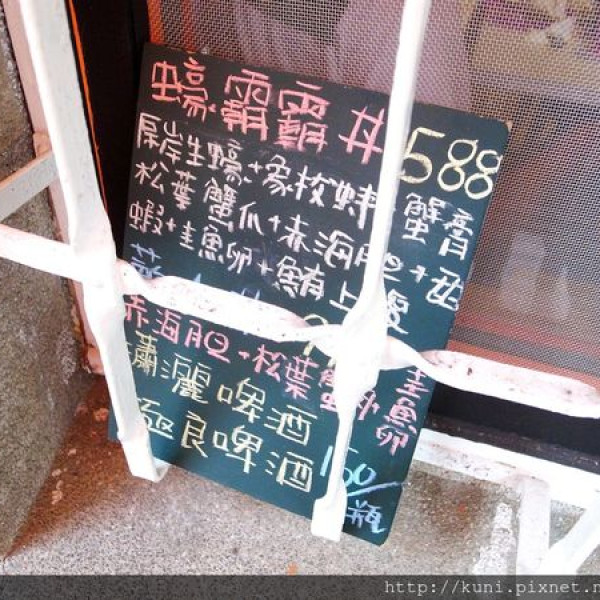 蠔霸霸丼 588
厚岸生蠔+象拔蚌 蟹膏
松葉蟹爪+赤海胆+西
蝦+圭魚卵+鮪上腹
赤海胆+松葉蟹 圭魚卵
瀟灑啤酒
極良啤酒 150/瓶
http://kuni.pixnet.n